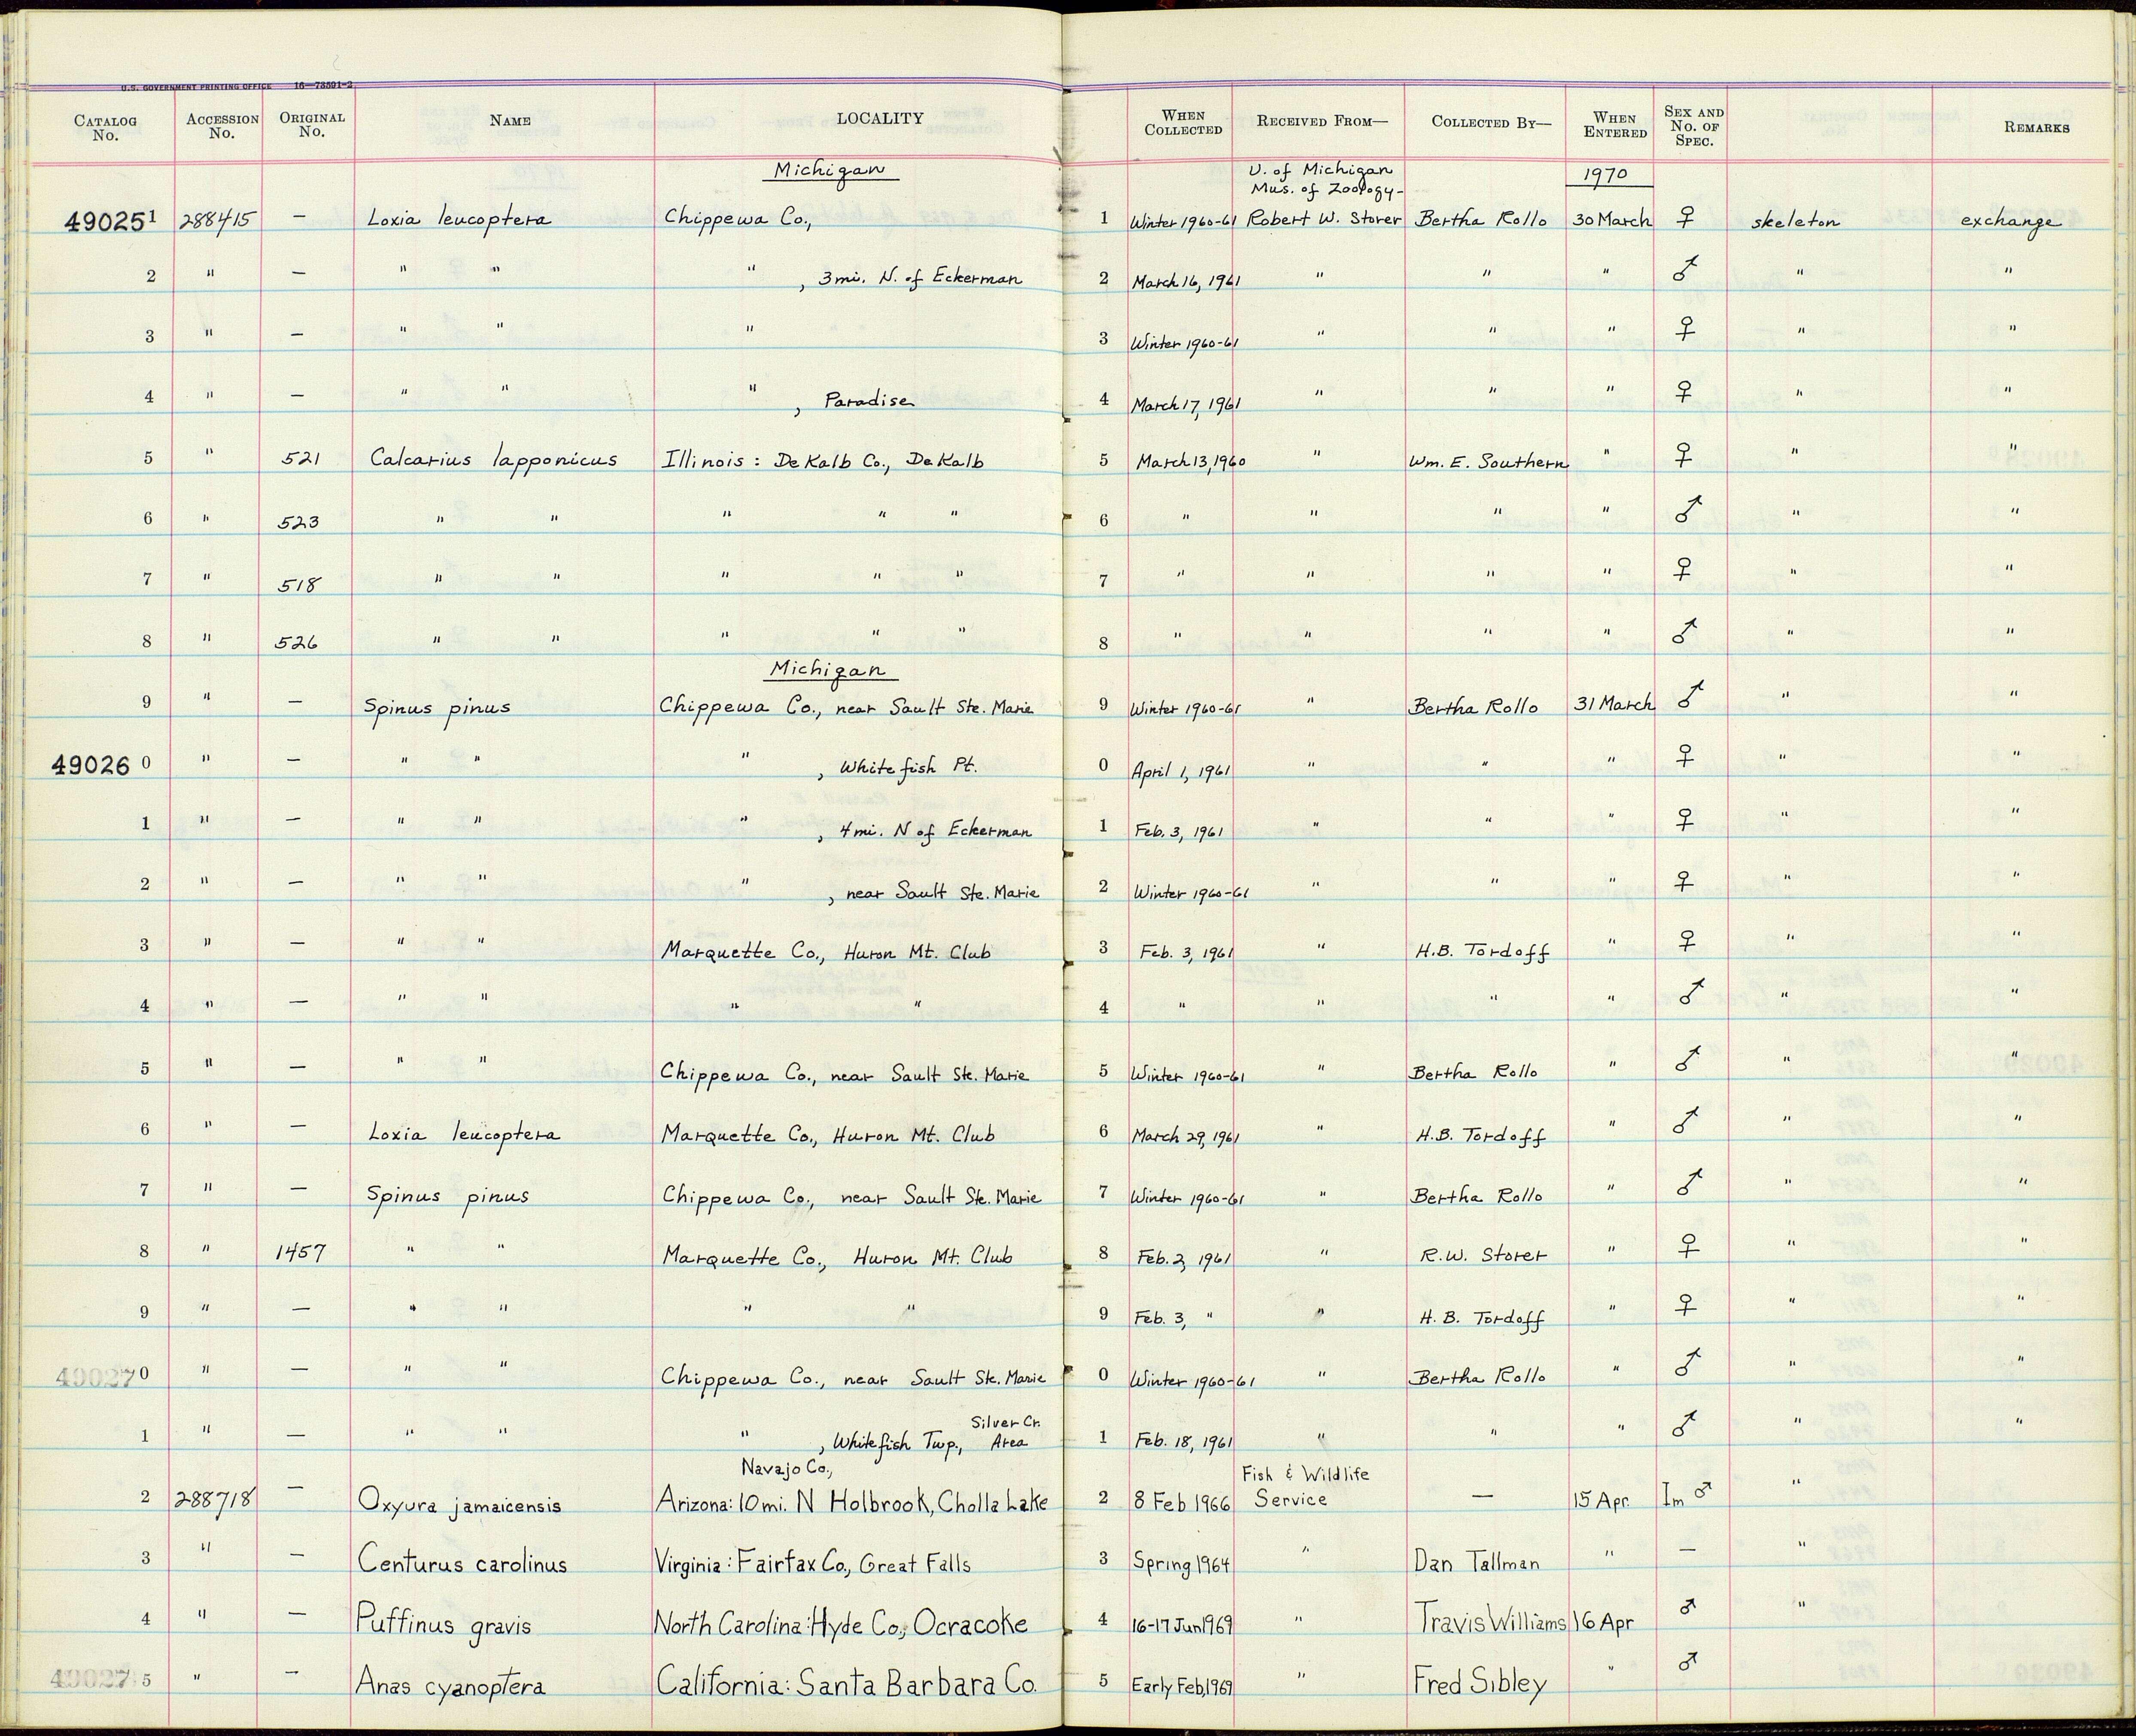 U.S. GOVERNMENT PRINTING OFFICE 16—73591-2
CATALOG No. ACCESSION No. ORIGINAL No. NAME LOCALITY WHEN COLLECTED RECEIVED FROM— COLLECTED BY— WHEN ENTERED SEX AND No. OF SPEC. REMARKS
Michigan U. of Michigan Mus. of Zoology- 1970
490251 288415 — Loxia leucoptera Chippewa Co., 1 Winter 1960-61 Robert W. Storer Bertha Rollo 30 March ♀ skeleton exchange
2 " — " " " , 3mi. N. of Eckerman 2 March 16, 1961 " " " ♂ " "
3 " — " " " 3 Winter 1960-61 " " " ♀ " "
4 " — " " " , Paradise 4 March 17, 1961 " " " ♀ " "
5 " 521 Calcarius lapponicus Illinois: De Kalb Co., De Kalb 5 March 13, 1960 " Wm. E. Southern " ♀ " "
6 " 523 " " " " " 6 " " " " ♂ " "
7 " 518 " " " " " 7 " " " " ♀ " "
8 " 526 " " " " " 8 " " " " ♂ " "
Michigan
9 " — Spinus pinus Chippewa Co., near Sault Ste. Marie 9 Winter 1960-61 " Bertha Rollo 31 March ♂ " "
49026 0 " — " " " , Whitefish Pt. 0 April 1, 1961 " " " ♀ " "
1 " — " " " , 4mi. N of Eckerman 1 Feb. 3, 1961 " " " ♀ " "
2 " — " " " , near Sault Ste. Marie 2 Winter 1960-61 " " " ♀ " "
3 " — " " Marquette Co., Huron Mt. Club 3 Feb. 3, 1961 " H.B. Tordoff " ♀ " "
4 " — " " " " 4 " " " " ♂ " "
5 " — " " Chippewa Co., near Sault Ste. Marie 5 Winter 1960-61 " Bertha Rollo " ♂ " "
6 " — Loxia leucoptera Marquette Co., Huron Mt. Club 6 March 29, 1961 " H.B. Tordoff " ♂ " "
7 " — Spinus pinus Chippewa Co., near Sault Ste. Marie 7 Winter 1960-61 " Bertha Rollo " ♂ " "
8 " 1457 " " Marquette Co., Huron Mt. Club 8 Feb. 2, 1961 " R.W. Storer " ♀ " "
9 " — " " " " 9 Feb. 3, " " H. B. Tordoff " ♀ " "
49027 0 " — " " Chippewa Co., near Sault Ste. Marie 0 Winter 1960-61 " Bertha Rollo " ♂ " "
1 " — " " " , Whitefish Twp., Silver Cr. Area 1 Feb. 18, 1961 " " " ♂ " "
Navajo Co., Fish & Wildlife
2 288718 — Oxyura jamaicensis Arizona: 10mi. N Holbrook, Cholla Lake 2 8 Feb 1966 Service — 15 Apr. Im ♂ "
3 " — Centurus carolinus Virginia: Fairfax Co., Great Falls 3 Spring 1964 " Dan Tallman " — "
4 " — Puffinus gravis North Carolina: Hyde Co., Ocracoke 4 16-17 Jun 1969 " Travis Williams 16 Apr ♂ "
49027 5 " — Anas cyanoptera California: Santa Barbara Co. 5 Early Feb, 1969 " Fred Sibley " ♂